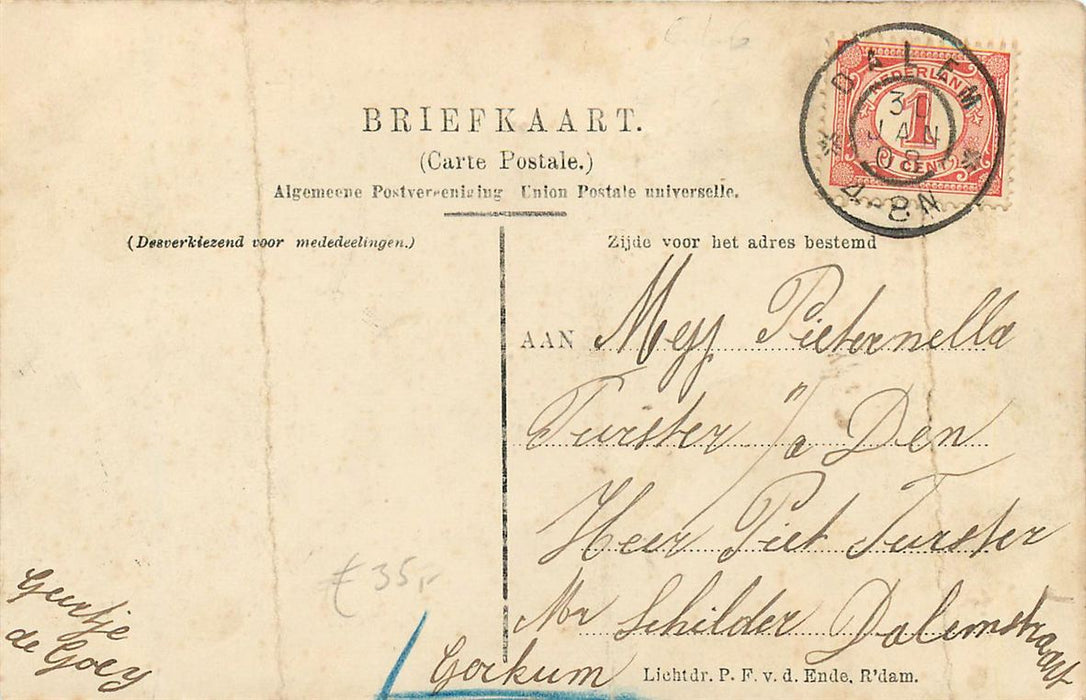 BRIEFKAART.
(Carte Postale.)
Algemeene Postvereeniging Union Postale universelle.
(Desverkiezend voor mededeelingen.)
Zijde voor het adres bestemd
DALEM
31
JAN
08
4-8N
NEDERLAND
1
CENT
AAN Mejj Pieternella
Turster p/a Den
Heer Piet Turster
Mr Schilder Dalemstraat
Gorkum
Geertje
de Goey
€ 35,-
Lichtdr. P. F. v. d. Ende, R'dam.